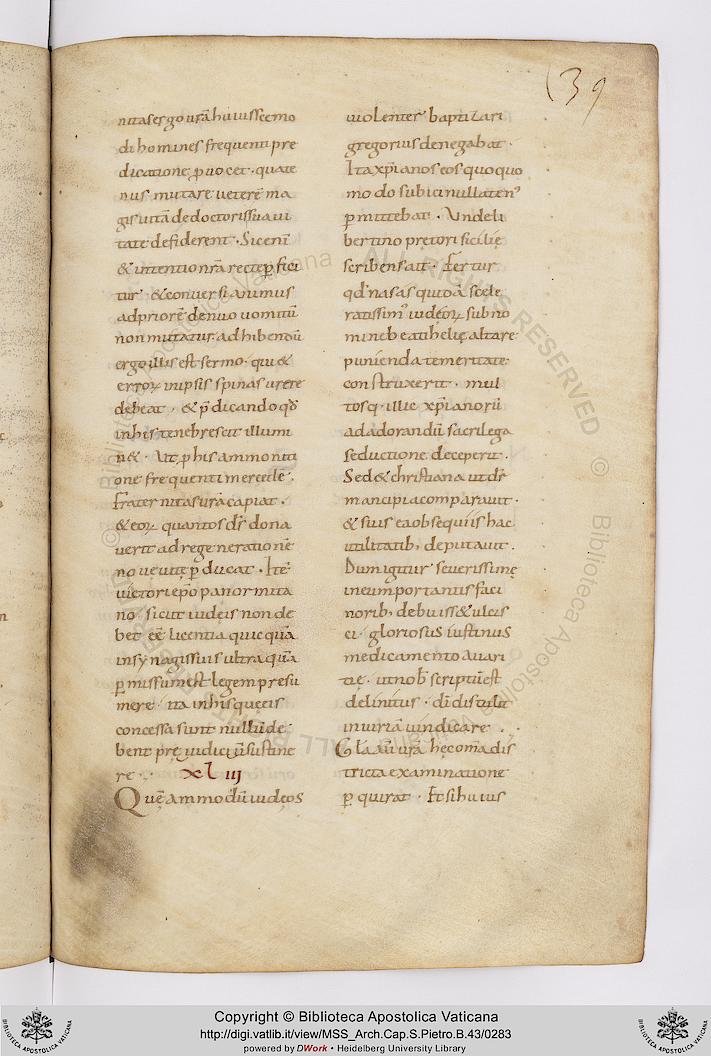 139
nitas ergo urã huiuscemo
di homines frequenti pre
dicatione ꝓuocet · quate
nus mutare ueterẽ ma
gis uitã de doctoris sua ui
tate desiderent · Sic enĩ
& intentio nrã recte ꝑfici
tur · & conuersi animus
ad priorẽ denuo uomitũ
non mutatur · adhibendũ
ergo illis est sermo · qui &
erroꝝ in ipsis spinas urere
debeat · & p̃dicando qđ
in his tenebrescit illumi
n& · Ut ꝑ his ammoniti
one frequenti mercede ·
Fraternitas urã capiat ·
& eoꝝ quantos d̃s dona
uerit ad regenerationẽ
nouę uitę ꝑducat · Itẽ
uictori ep̃o panormita
no · sicut iudęis non de
bet eẽ licentia quicquã
in synagis suis ultra quã
ꝑmissum est legem presu
mere · ita in his quę eis
concessa sunt nullũ de
bent pręiudiciũ sustine
re · XL III
Quẽammodũ iudęos
uiolenter baptizari
gregorius denegabat ·
Ita xp̃ianos eos quoquo
modo subici nullaten⁹
ꝑmittebat · Unde li
bertino pretori sicilię
scribens ait · Fertur
qđ nasas quidã scele
ratissim⁹ iudęoꝝ sub no
mine beati helię altare
punienda temeritate
construxerit · mul
tosq· illic xp̃ianorũ
ad adorandũ sacrilega
seductione deceperit ·
Sed & christiana ut dr̃
mancipia comparauit ·
& suis ea obsequiis hac
utilitatib; deputauit ·
Dum igitur seuerissimę
in eum portantis faci
norib; debuiss& ulcis
ci · gloriosus iustinus
medicamento auari
tię · ut nob̃ scriptũ est
delinitus · dĩ distulit
iniuriã uindicare ·
Gla aũ urã hęc omĩa dis
tricta examinatione
ꝑquirat · Et si huius
ALL RIGHTS RESERVED
© Biblioteca Apostolica Vaticana
Copyright © Biblioteca Apostolica Vaticana
http://digi.vatlib.it/view/MSS_Arch.Cap.S.Pietro.B.43/0283
powered by DWork • Heidelberg University Library